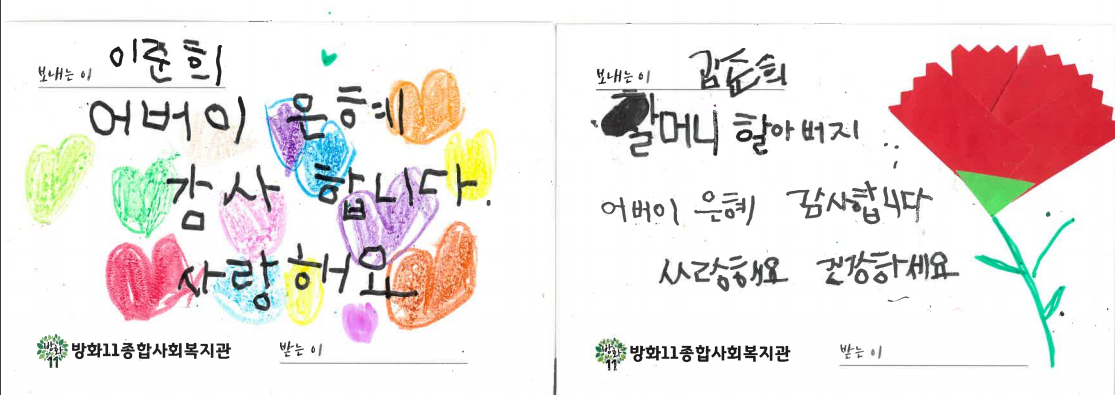 보내는 이 이준희
어버이 은혜
감사 합니다.
사랑 해요
방화11 방화11종합사회복지관
받는 이
보내는 이
할머니 할아버지
어버이 은혜 감사합니다
사랑해요 건강하세요
방화11 방화11종합사회복지관
받는 이